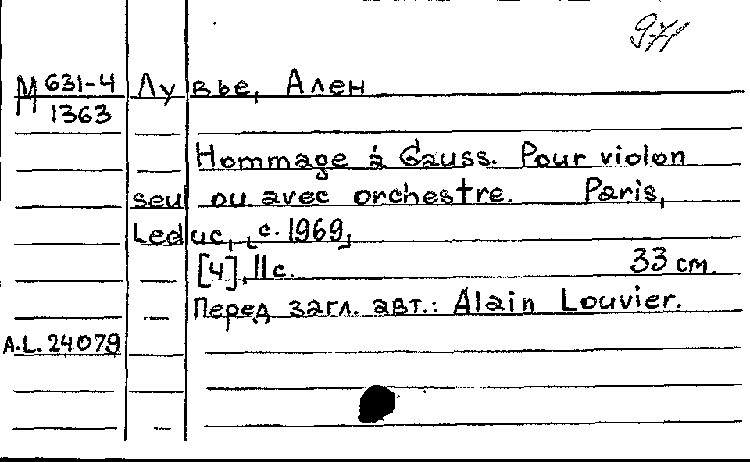 971
М 631-4 Лувье, Ален
1363
Hommage à Gauss. Pour violon
seul ou avec orchestre. Paris,
Leduc, [c. 1969]
[4], 11 с. 33 см.
Перед загл. авт.: Alain Louvier.
A.L. 24079